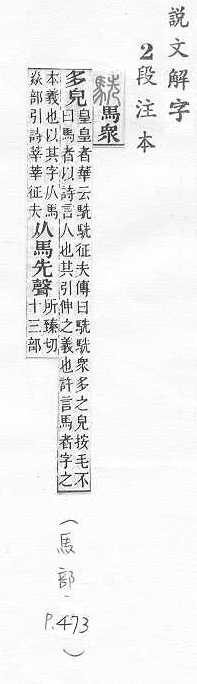 說文解字
2段注本
駪 馬衆
多皃
皇皇者華云駪駪征夫傳曰駪駪衆多之皃按毛不
曰馬者以詩言人也其引伸之義也許言馬者字之
本義也以其字从馬
焱部引詩莘莘征夫
从馬先聲
所臻切
十三部
(馬部,P.473)